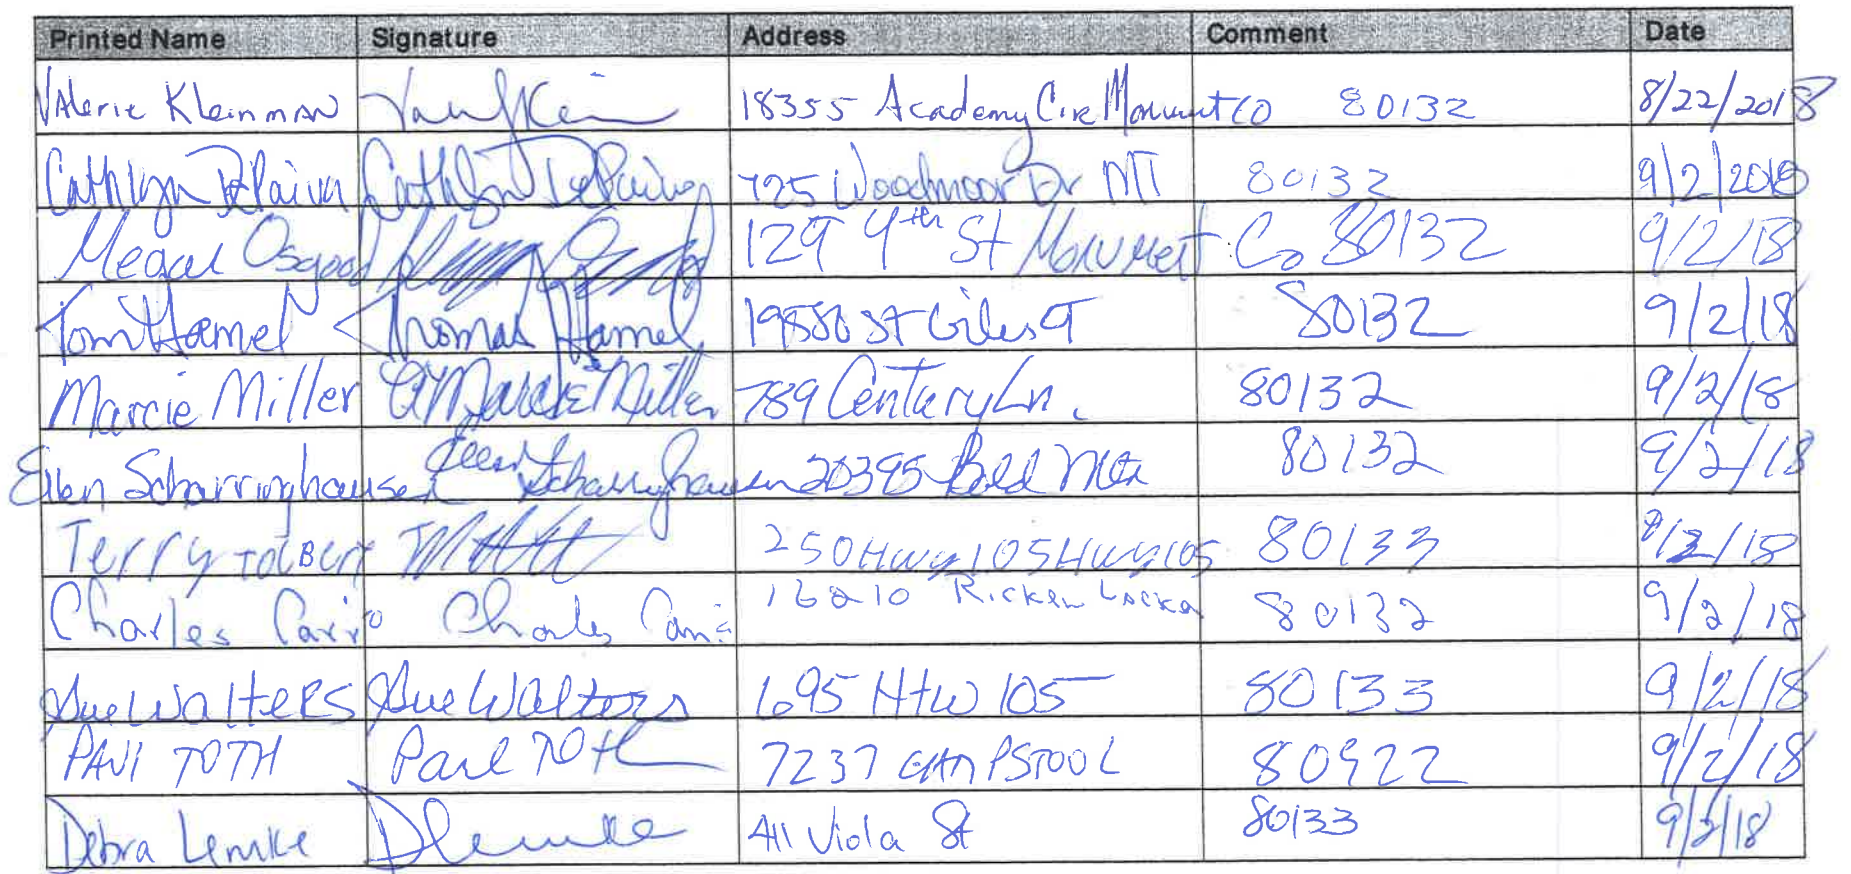 Printed Name Signature Address Comment Date
Valerie Kleinman 18355 Academy Circ Monument CO 80132 8/22/2018
Cathlyn DePaiva Cathlyn DePaiva 725 Woodmoor Dr MT 80132 9/2/2018
Megan Osgood 129 4th St Monument Co 80132 9/2/18
Tom Hamel Thomas Hamel 19550 St Giles CT 80132 9/2/18
Marcie Miller Marcie Miller 789 Century Ln. 80132 9/2/18
Ellen Scharringhausen Ellen Scharringhausen 20395 Bald Mtn 80132 9/2/18
Terry Tolbert 250 Hwy 105 Hwy 105 80133 9/2/18
Charles Carrio Charles 16210 80132 9/2/18
Sue Walters Sue Walters 695 Hw 105 80133 9/2/18
PAUl TOTH Paul Toth 7237 CHAPSTOOL 80922 9/2/18
Debra Lemke DLemke 411 Viola St 80133 9/2/18